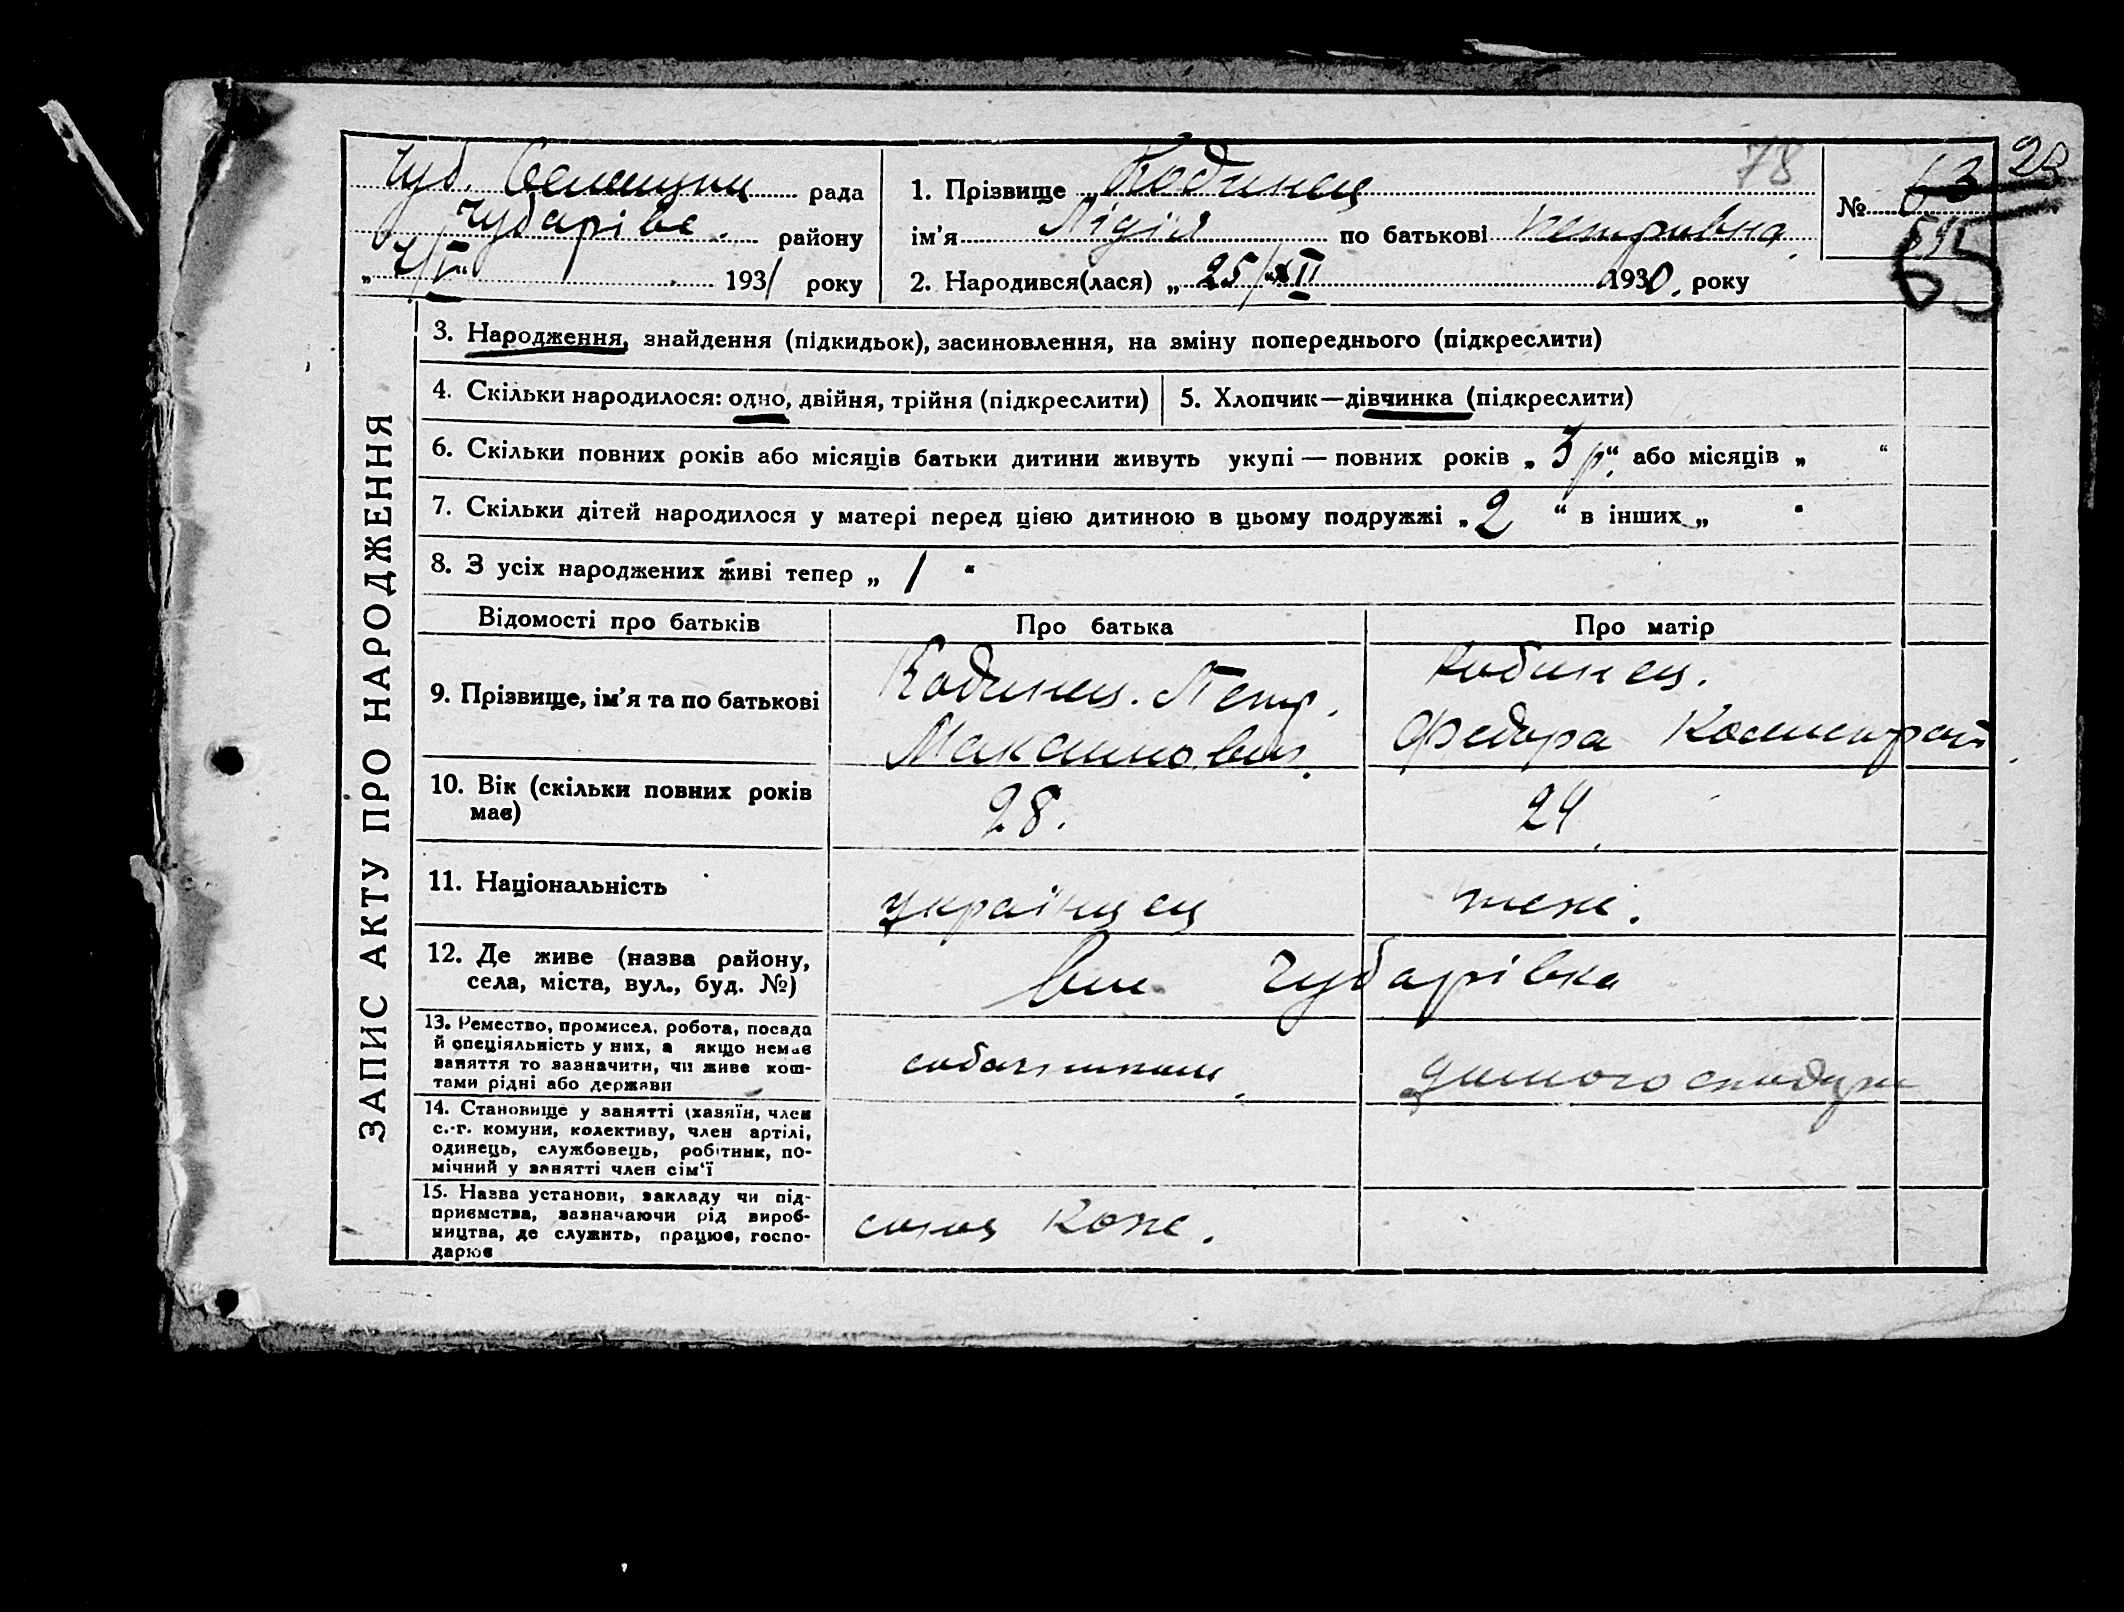 Чуб. Селищна рада
Чубарівс. району
„ 4/I “ 1931 року
1. Прізвище Кодинец
78
ім'я Лідія по батькові Петрівна
2. Народився(лася) „ 25/XII 1930. року
№ 63 23
65
ЗАПИС АКТУ ПРО НАРОДЖЕННЯ
3. Народження, знайдення (підкидьок), засиновлення, на зміну попереднього (підкреслити)
4. Скільки народилося: одно, двійня, трійня (підкреслити)
5. Хлопчик—дівчинка (підкреслити)
6. Скільки повних років або місяців батьки дитини живуть укупі — повних років „ 3 р “, або місяців „ “
7. Скільки дітей народилося у матері перед цією дитиною в цьому подружжі „ 2 “ в інших „ “
8. З усіх народжених живі тепер „ 1 “
Відомості про батьків
Про батька
Про матір
9. Прізвище, ім'я та по батькові
Кодинец. Петр.
Максимович.
Кодинец.
Федора
10. Вік (скільки повних років
має)
28.
24
11. Національність
українец
теж.
12. Де живе (назва району,
села, міста, вул., буд. №)
Чубарівка
13. Ремество, промисел, робота, посада
й спеціяльність у них, а якщо немає
заняття то зазначити, чи живе кош-
тами рідні або держави
домогосподар
14. Становище у занятті (хазяїн, член
с.-г. комуни, колективу, член артілі,
одинець, службовець, робітник, по-
мічний у занятті член сім'ї
15. Назва установи, закладу чи під-
приємства, зазначаючи рід вироб-
ництва, де служить, працює, госпо-
дарює
союз Коже.